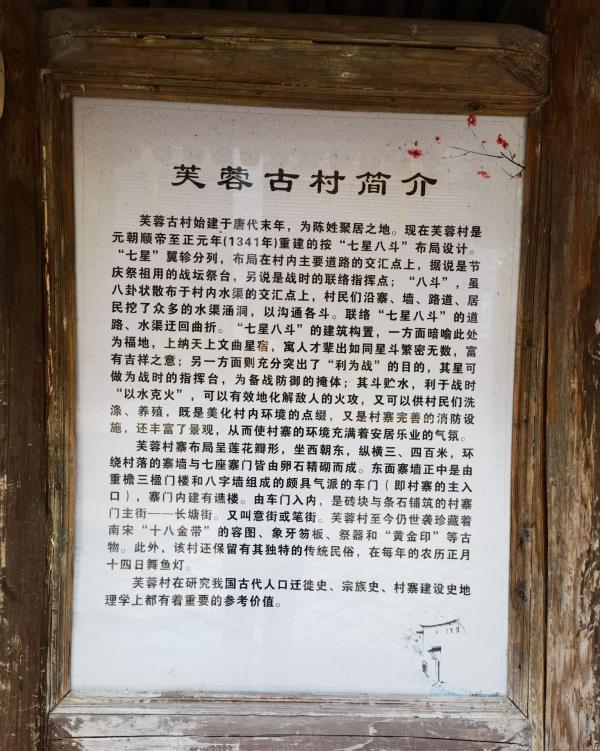 芙蓉古村简介
芙蓉古村始建于唐代末年，为陈姓聚居之地。现在芙蓉村是
元朝顺帝至正元年(1341年)重建的按“七星八斗”布局设计。
“七星”翼轸分列，布局在村内主要道路的交汇点上，据说是节
庆祭祖用的战坛祭台，另说是战时的联络指挥点；“八斗”，虽
八卦状散布于村内水渠的交汇点上，村民们沿寨、墙、路道、居
民挖了众多的水渠涵洞，以沟通各斗。联络“七星八斗”的道
路、水渠迂回曲折。“七星八斗”的建筑构置，一方面暗喻此处
为福地，上纳天上文曲星宿，寓人才辈出如同星斗繁密无数，富
有吉祥之意；另一方面则充分突出了“利为战”的目的，其星可
做为战时的指挥台，为备战防御的掩体；其斗贮水，利于战时
“以水克火”，可以有效地化解敌人的火攻，又可以供村民们洗
涤、养殖，既是美化村内环境的点缀，又是村寨完善的消防设
施，还丰富了景观，从而使村寨的环境充满着安居乐业的气氛。
芙蓉村寨布局呈莲花瓣形，坐西朝东，纵横三、四百米，环
绕村落的寨墙与七座寨门皆由卵石精砌而成。东面寨墙正中是由
重檐三楹门楼和八字墙组成的颇具气派的车门（即村寨的主入
口），寨门内建有谯楼。由车门入内，是砖块与条石铺筑的村寨
门主街——长塘街。又叫意街或笔街。芙蓉村至今仍世袭珍藏着
南宋“十八金带”的容图、象牙笏板、祭器和“黄金印”等古
物。此外，该村还保留有其独特的传统民俗，在每年的农历正月
十四日舞鱼灯。
芙蓉村在研究我国古代人口迁徙史、宗族史、村寨建设史地
理学上都有着重要的参考价值。